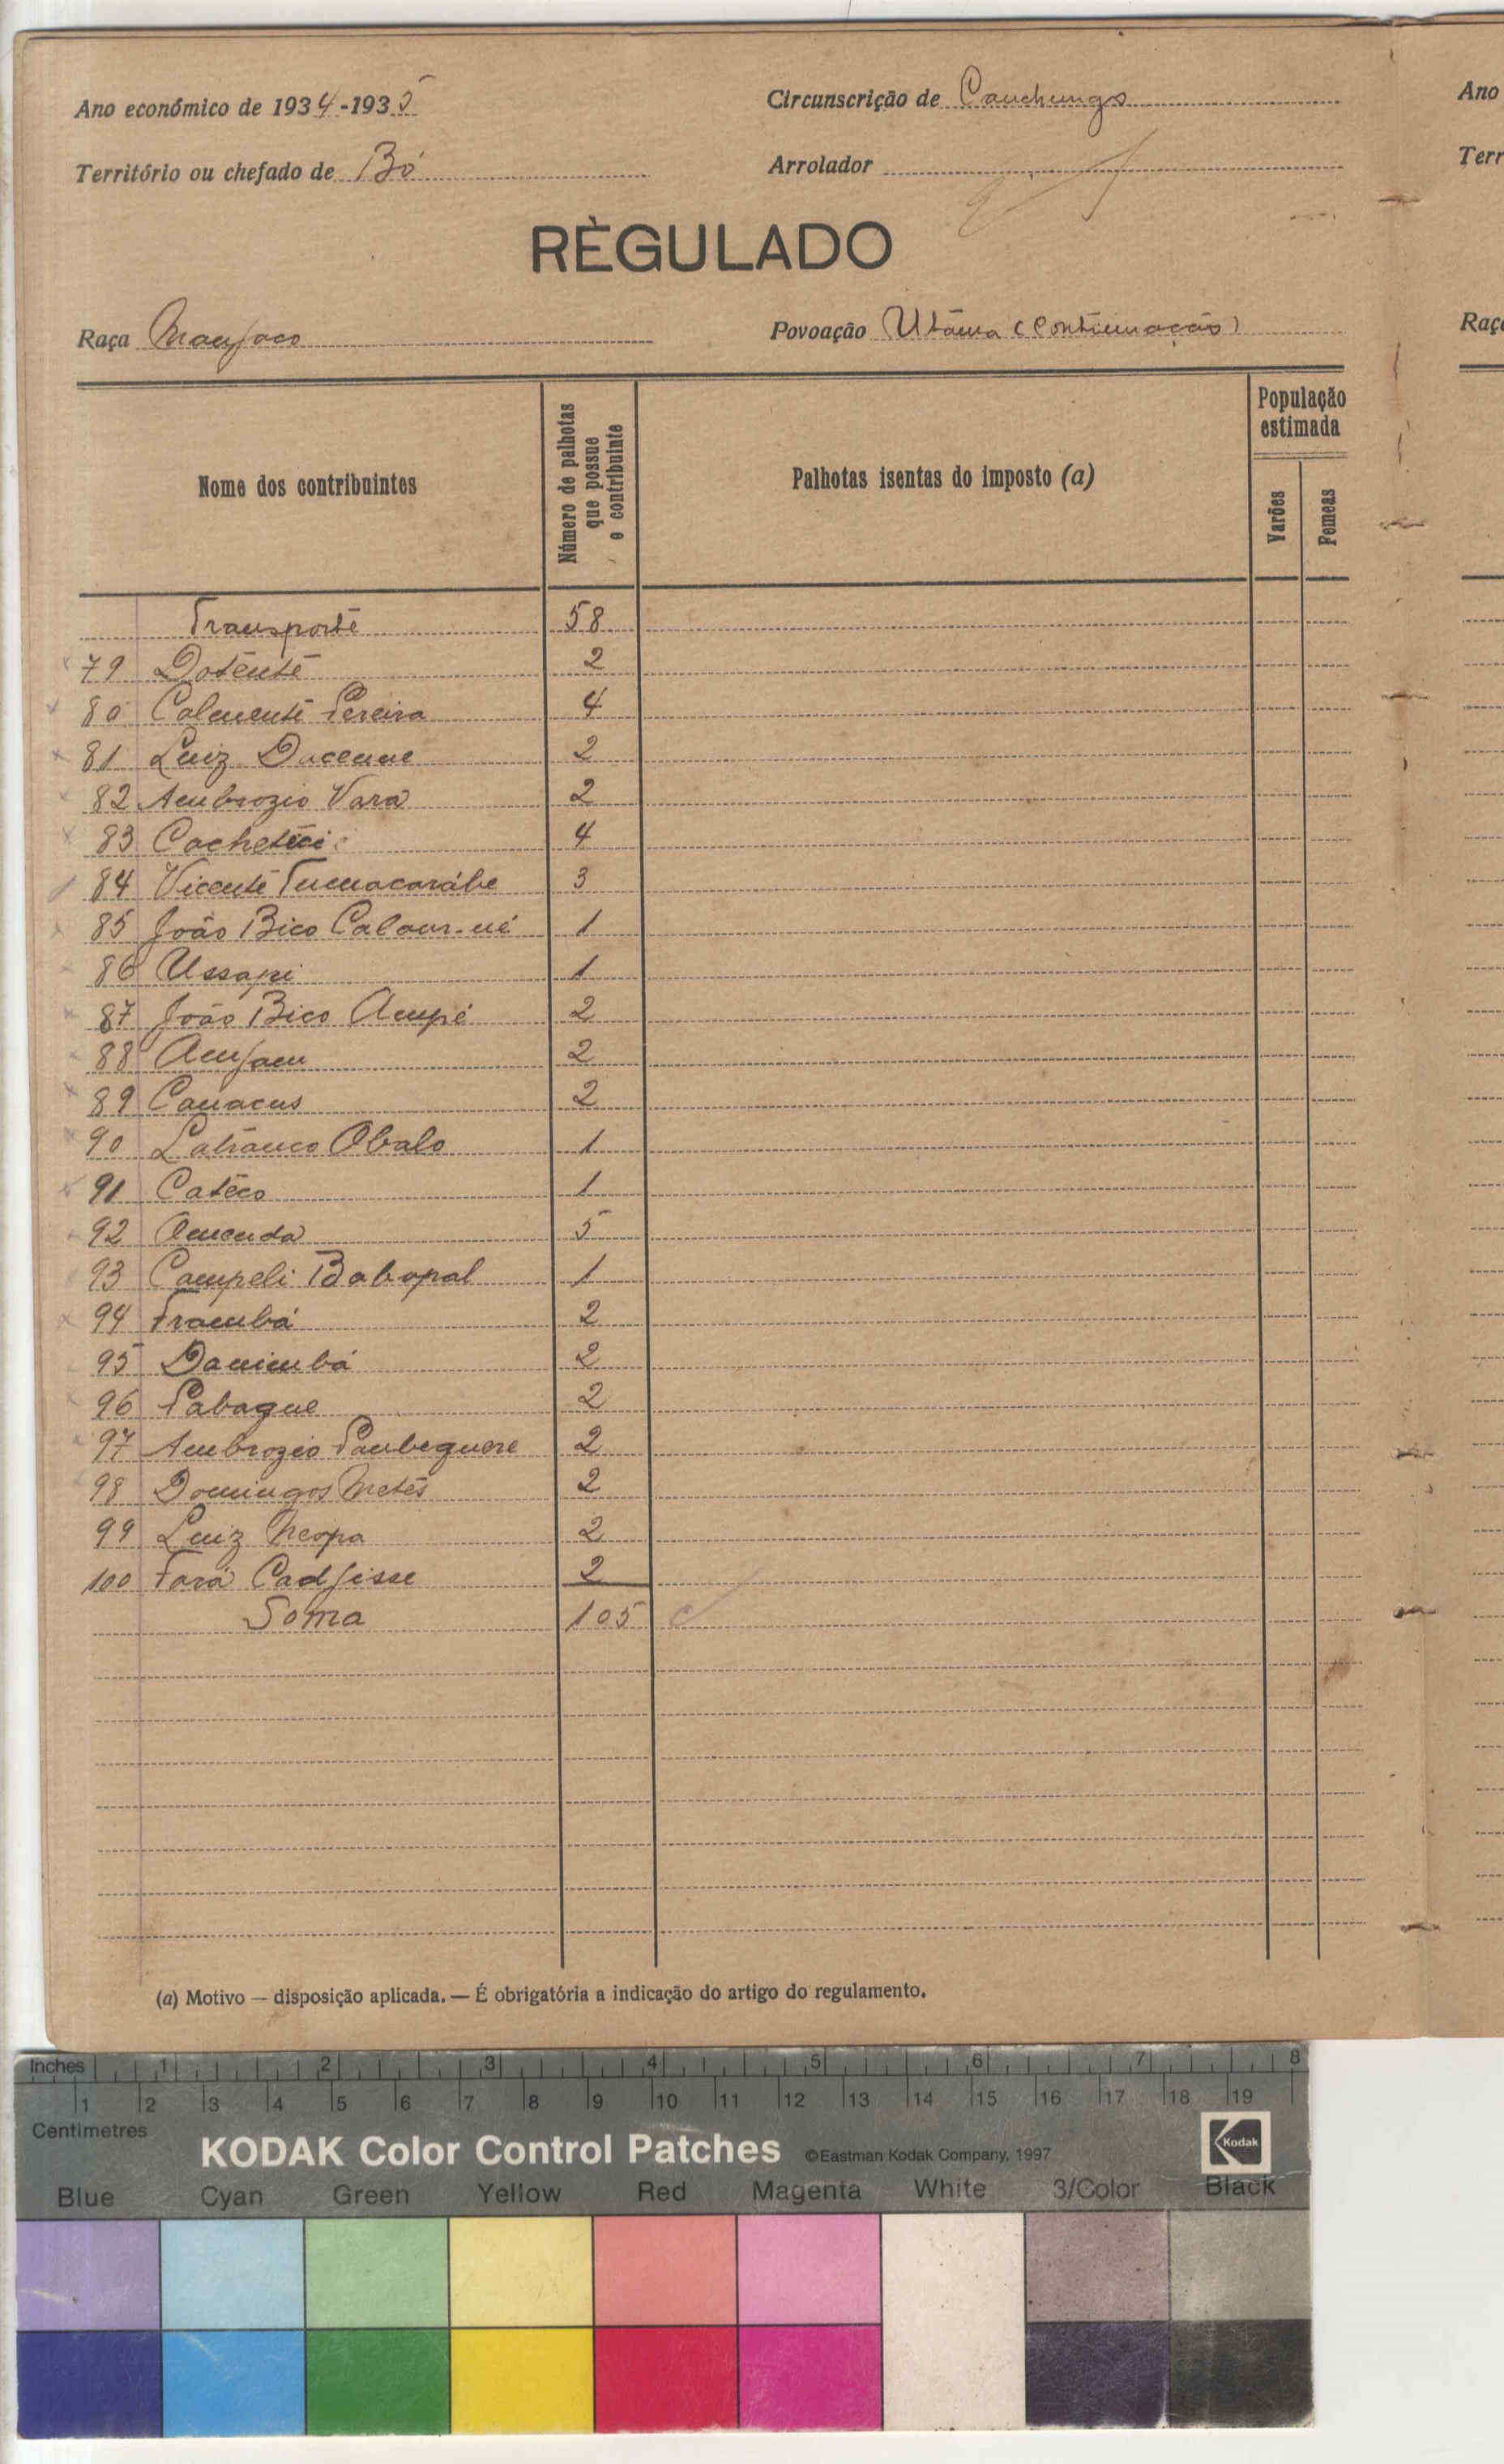 Ano económico de 1934-1935
Circunscrição de Canchungo
Território ou chefado de Bó
Arrolador
RÈGULADO
Raça Manjaco
Povoação Utāma (Continuação)
Nome dos contribuintes
Número de palhotas que possue o contribuinte
Palhotas isentas do imposto (a)
População estimada
Varões
Femeas
Transporte 58
79 Dotente 2
80 Calmente Pereira 4
81 Luiz Dacenne 2
82 Ambrozio Vara 2
83 Cacheteci 4
84 Vicente Tumacarábe 3
85 João Bico Calour-né 1
86 Ussapi 1
87 João Bico Ampé 2
88 Amjam 2
89 Canacus 2
90 Latranco Obalo 1
91 Catēco 1
92 Amenda 5
93 Campeli Babopal 1
94 Frambá 2
95 Danimbá 2
96 Pabague 2
97 Ambrozio Panbeguere 2
98 Domingos Metés 2
99 Luiz Neopa 2
100 Fará Cadjisse 2
Soma 105
(a) Motivo — disposição aplicada. — É obrigatória a indicação do artigo do regulamento.
Ano
Terr
Raç
Inches 1 2 3 4 5 6 7 8
1 2 3 4 5 6 7 8 9 10 11 12 13 14 15 16 17 18 19
Centimetres
KODAK Color Control Patches ©Eastman Kodak Company, 1997 Kodak
Blue Cyan Green Yellow Red Magenta White 3/Color Black